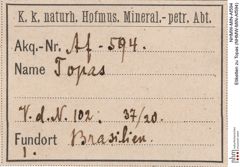 K. k. naturh. Hofmus. Mineral.- petr. Abt.
Akq.-Nr. Af - 594.
Name Topas
V. d. N. 102. 37/20.
Fundort Brasilien.
1.